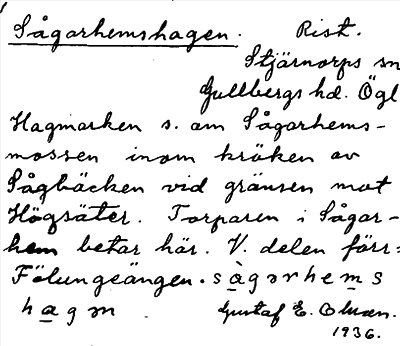 Sågarhemshagen. Rist.
Stjärnorps sn
Gullbergs hd. Ögl
Hagmarken s. om Sågarhems-
mossen inom kröken av
Sågbäcken vid gränsen mot
Högsäter. Torparen i Sågar-
hem betar här. V. delen förr:
Fölungeängen. sågarhems
hagen
Gustaf E. Olsson.
1936.